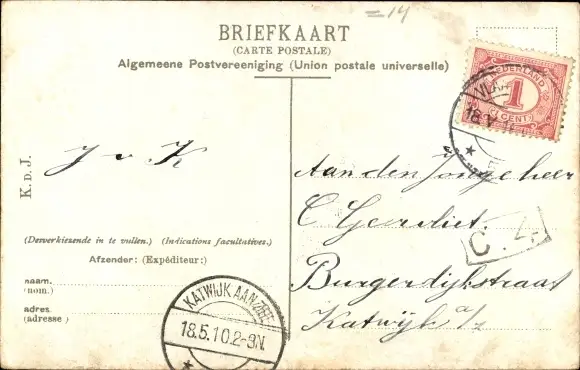 =14
BRIEFKAART
(CARTE POSTALE)
Algemeene Postvereeniging (Union postale universelle)
NEDERLAND
1
CENT
K. D. J.
J v. K
Aan den Jonge heer
C Gervliet
C. 4.
Burgerdijkstraat
Katwijk a/z
(Desverkiezende in te vullen.) (Indications facultatives.)
Afzender: (Expéditeur:)
naam.
(nom.)
adres
(adresse )
KATWIJK AAN ZEE
18.5.10.2-3N.